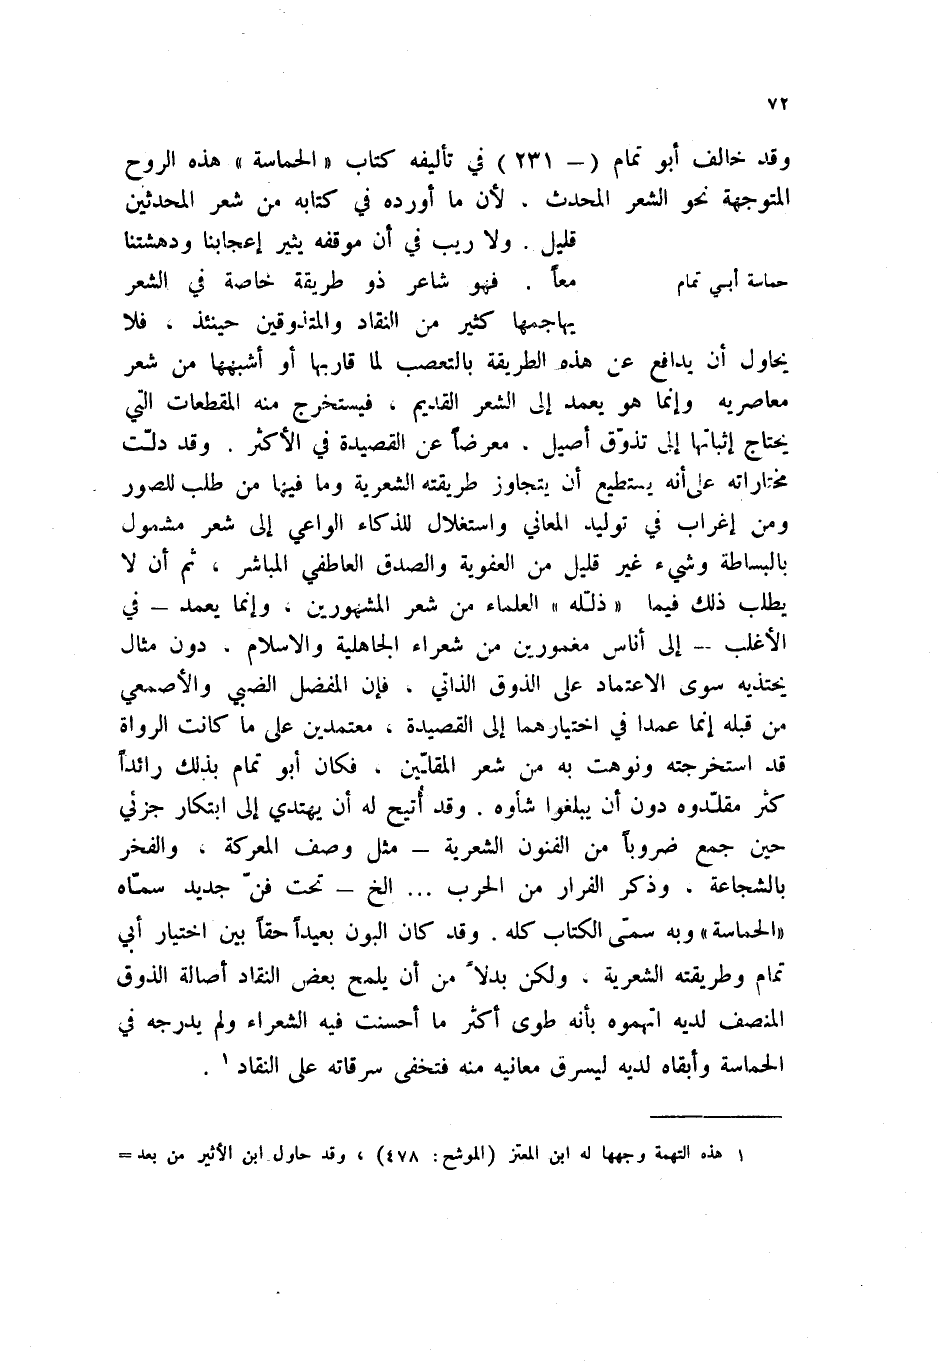 ٧٢
وقد خالف أبو تمام ( – ٢٣١ ) في تأليفه كتاب « الحماسة » هذه الروح
المتوجهة نحو الشعر المحدث . لأن ما أورده في كتابه من شعر المحدثين
قليل . ولا ريب في أن موقفه يثير إعجابنا ودهشتنا
حماسة أبي تمام
معاً . فهو شاعر ذو طريقة خاصة في الشعر
يهاجمها كثير من النقاد والمتذوقين حينئذ ، فلا
يحاول أن يدافع عن هذه الطريقة بالتعصب لما قاربها أو أشبهها من شعر
معاصريه وإنما هو يعمد إلى الشعر القديم ، فيستخرج منه المقطعات التي
يحتاج إثباتها إلى تذوّق أصيل . معرضاً عن القصيدة في الأكثر . وقد دلّت
مختاراته على أنه يستطيع أن يتجاوز طريقته الشعرية وما فيها من طلب للصور
ومن إغراب في توليد المعاني واستغلال للذكاء الواعي إلى شعر مشمول
بالبساطة وشيء غير قليل من العفوية والصدق العاطفي المباشر ، ثم أن لا
يطلب ذلك فيما « ذلّله » العلماء من شعر المشهورين ، وإنما يعمد – في
الأغلب – إلى أناس مغمورين من شعراء الجاهلية والاسلام . دون مثال
يحتذيه سوى الاعتماد على الذوق الذاتي ، فإن المفضل الضبي والأصمعي
من قبله إنما عمدا في اختيارهما إلى القصيدة ، معتمدين على ما كانت الرواة
قد استخرجته ونوهت به من شعر المقلّين . فكان أبو تمام بذلك رائداً
كثر مقلّدوه دون أن يبلغوا شأوه . وقد أُتيح له أن يهتدي إلى ابتكار جزئي
حين جمع ضروباً من الفنون الشعرية – مثل وصف المعركة ، والفخر
بالشجاعة ، وذكر الفرار من الحرب ... الخ – تحت فنّ جديد سمّاه
«الحماسة» وبه سمّى الكتاب كله . وقد كان البون بعيداً حقاً بين اختيار أبي
تمام وطريقته الشعرية . ولكن بدلاً من أن يلمح بعض النقاد أصالة الذوق
المنصف لديه اتهموه بأنه طوى أكثر ما أحسنت فيه الشعراء ولم يدرجه في
الحماسة وأبقاه لديه ليسرق معانيه منه فتخفى سرقاته على النقاد ١ .
١ هذه التهمة وجهها له ابن المعتز (الموشح: ٤٧٨) ، وقد حاول ابن الأثير من بعد =